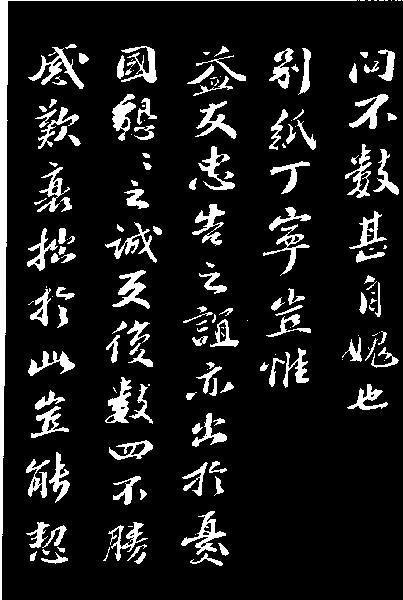 問不數甚自媿也
別紙丁寧豈惟
益友忠告之誼亦出於憂
國懇〻之誠又後數四不勝
感歎衰拙於此豈能恝